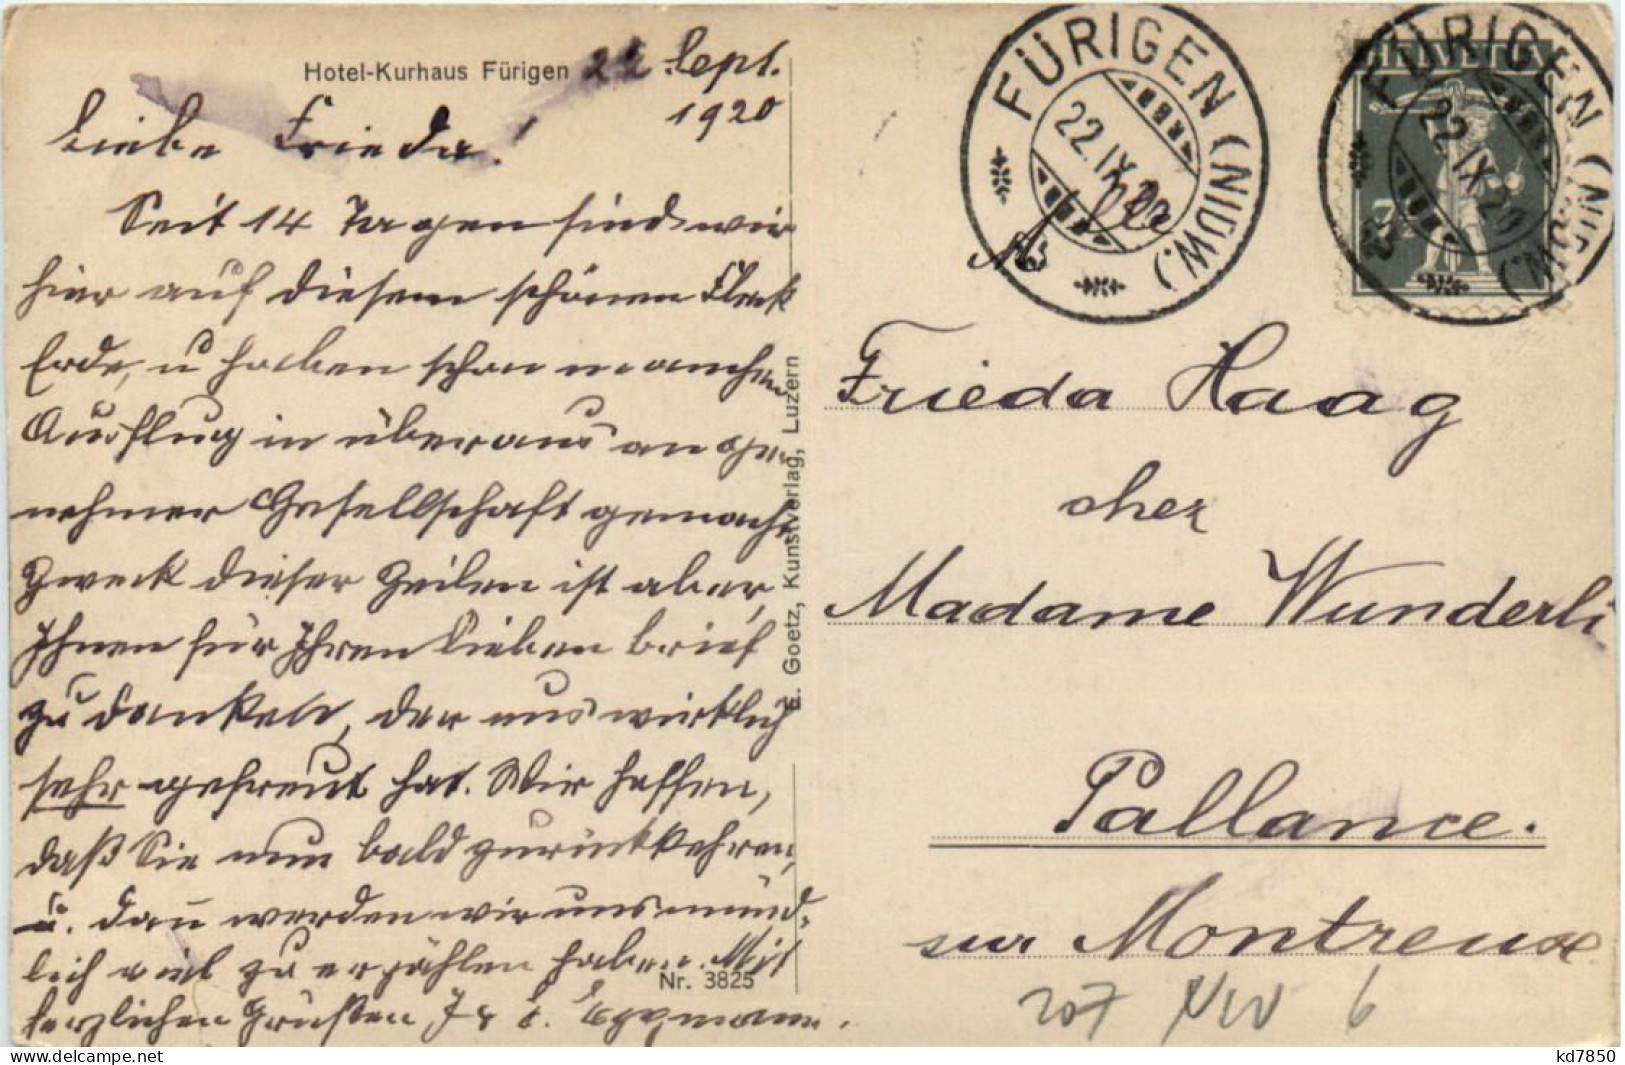 Hotel-Kurhaus Fürigen 22. Sept.
1920
Liebe Frieda!
Seit 14 Tagen sind wir
hier auf diesem schönen Fleck
Erde, u haben schon manchen
Ausflug in überaus ange-
nehmer Gesellschaft gemacht
Zweck dieser Zeilen ist aber,
Ihnen für Ihren lieben Brief
zu danken, der uns wirklich
sehr gefreut hat. Wir hoffen,
daß Sie nun bald zurückkehren,
u. dann werden wir uns münd-
lich viel zu erzählen haben. Mit
herzlichen Grüßen J & L. Eggmann.
Nr. 3825
E. Goetz, Kunstverlag, Luzern
FÜRIGEN (NIDW.)
22.IX.20
FÜRIGEN (NIDW.)
22.IX.20
HELVETIA
7½
Frieda Haag
chez
Madame Wunderli
Pallance.
sur Montreux
207 NW 6
kd7850